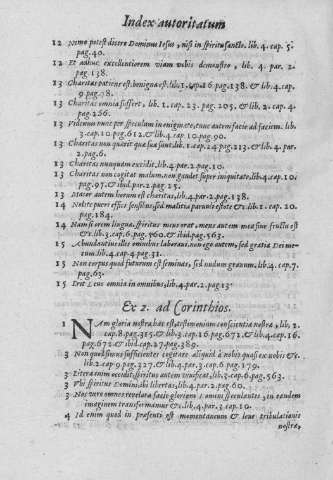 Index autoritatum
12 Nemo potest dicere Dominus Iesus, nisi in spiritu sancto. lib. 4. cap. 5.
pag. 40.
12 Et adhuc excellentiorem viam vobis demonstro, lib. 4. par. 2.
pag. 138.
13 Charitas patiens est, benigna est, lib. 1. cap. 16 pag. 138. & lib. 4. cap.
9 pag. 78.
13 Charitas omnia suffert, lib. 1. cap. 23. pag. 205, & lib. 2. cap. 4.
pag. 266.
13 Videmus nunc per speculum in enigmate, tunc autem facie ad faciem. lib.
3. cap. 10. pag. 612. & lib. 4. cap. 10. pag. 90.
13 Charitas non quærit quæ sua sunt. lib. 1. cap. 24 pag. 213. & lib. 4. par.
2. pag. 6.
13 Charitas nunquam excidit, lib. 4. par. 2. pag. 10.
13 Charitas non cogitat malum, non gaudet super iniquitate. lib. 4. cap. 10.
pag. 97, & ibid. par. 2. pag. 25.
13 Maior autem horum est charitas, lib. 4. par. 2. pag. 138.
14 Nolite pueri effici sensibus, sed malitia paruuli estote & lib. 1. cap. 20.
pag. 184.
14 Nam si orem lingua, spiritus meus orat, mens autem mea sine fructu est
& c. lib. 3. cap. 6. pag. 560. & ibid. pag. 563.
15 Abundantius illis omnibus laboraui, non ego autem, sed gratia Dei mecum.
lib. 4. cap. 4. pag. 31.
15 Non corpus quod futurum est seminas, sed nudum granum. lib. 4. cap. 7.
pag. 63.
15 Erit Deus omnia in omnibus, lib. 4. par. 2. pag. 13
Ex 2. ad Corinthios.
1 NAm gloria nostra hæc est, testimonium conscientiæ nostræ, lib. 2.
cap. 8. pag. 315. & lib. 3. cap. 16. pag. 671. & lib. 4. cap. 16.
pag. 673. & ibid. cap. 27. pag. 389.
3 Non quod simus sufficientes cogitare aliquid à nobis quasi ex nobis & c.
lib. 2. cap. 9. pag. 327. & lib. 4. par. 3. cap. 6. pag. 179.
3 Litera enim occidit, spiritus autem viuificat, lib. 3. cap. 6. pag. 563.
3 Vbi spiritus Domini, ibi libertas, lib. 4. par. 2. pag. 60.
3 Nos vero omnes reuelata facie gloriam Domini speculantes, in eandem
imaginem transformamur & c. lib. 4. par. 3. cap. 10.
4 Id enim quod in præsenti est momentaneum & leue tribulationis
nostræ,